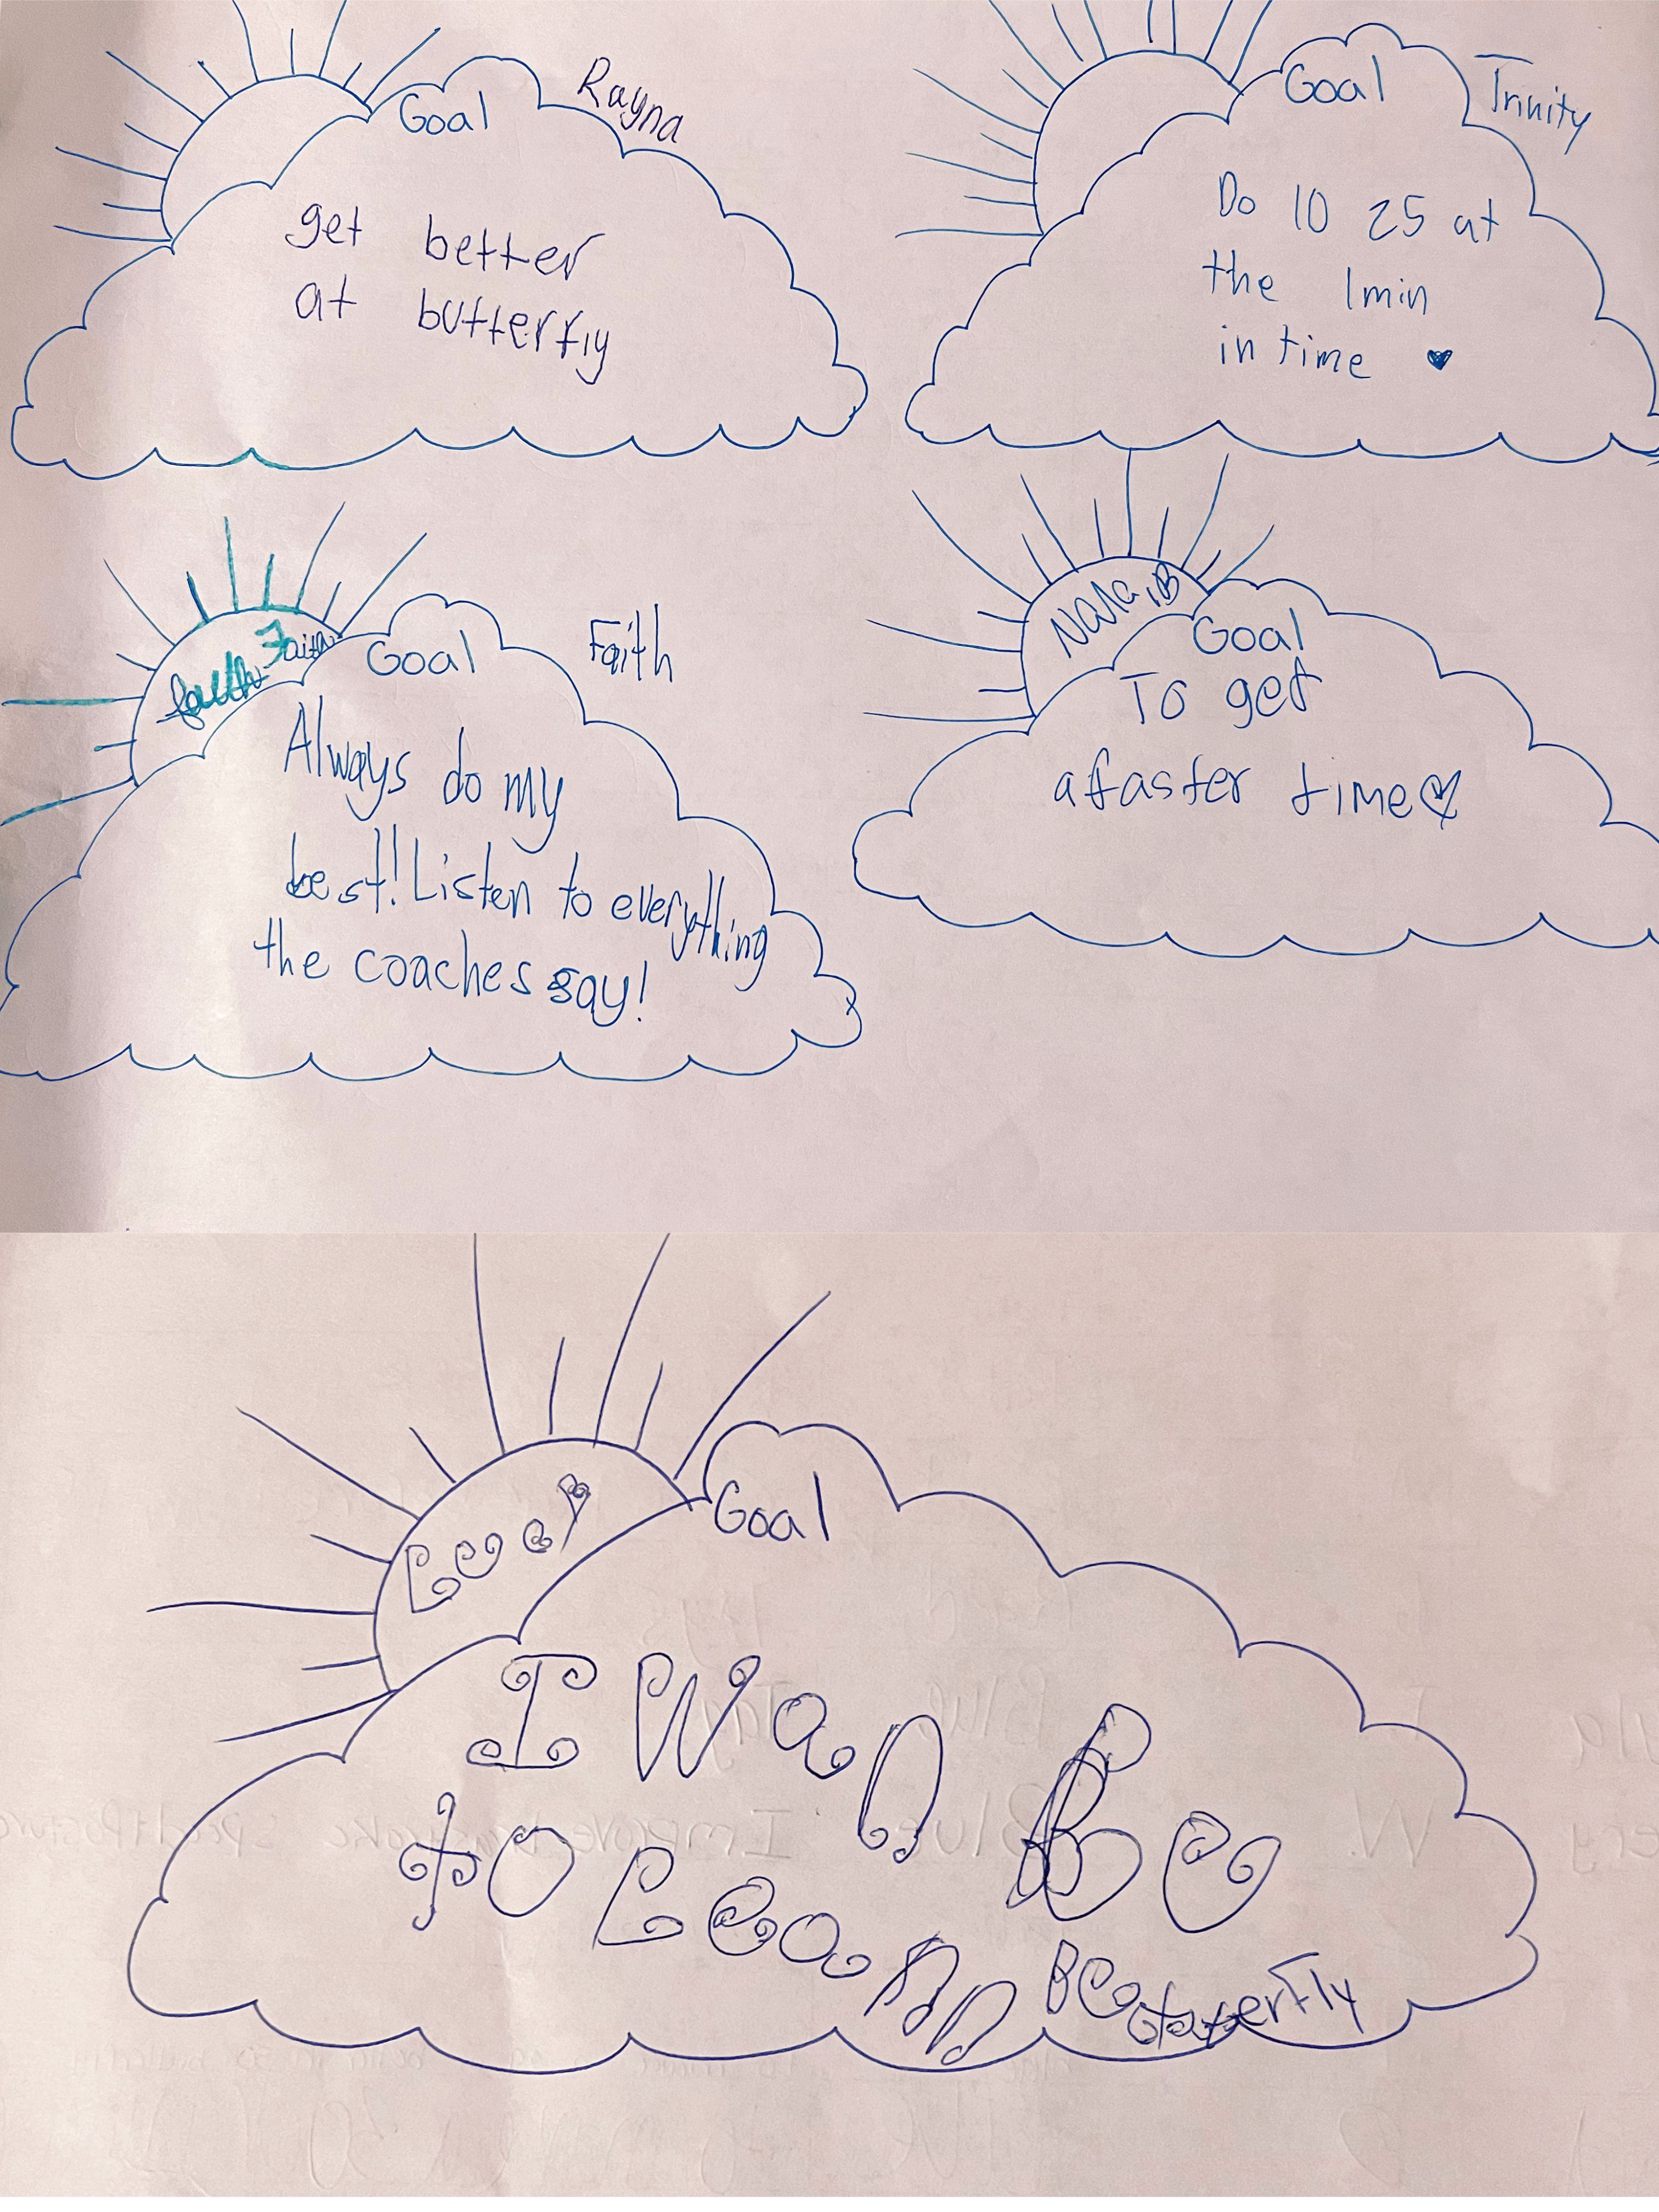 Goal
Rayna
get better
at butterfly
Goal
Trinity
Do 10 25 at
the 1min
in time
Faith
Goal
Faith
Always do my
best! Listen to everything
the coaches say!
Nala.B
Goal
To get
a faster time
Goal
I Wan Be
to Learn